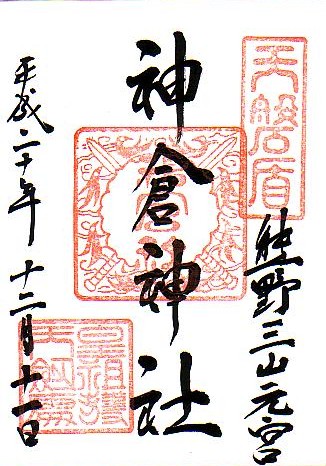 天磐盾
熊野三山元宮
神倉神社
平成二十年 十二月十一日